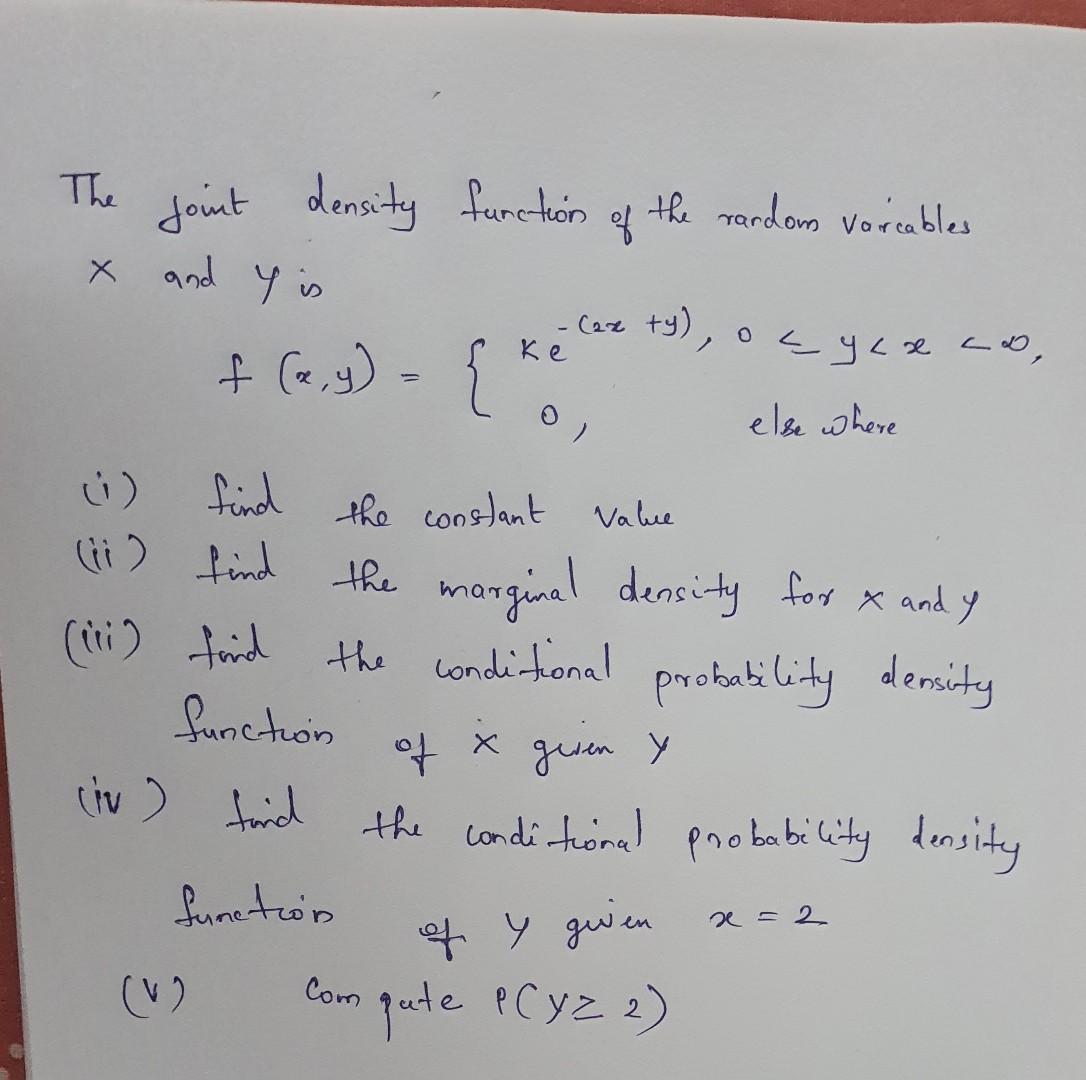 The joint density function of the random variables
X and Y is
f (x,y) = { Ke^-(2x +y), 0 ≤ y < x < ∞,
0, else where
(i) find the constant value
(ii) find the marginal density for x and y
(iii) find the conditional probability density
function of x given y
(iv) find the conditional probability density
function of y given x = 2
(v) Compute P(Y ≥ 2)